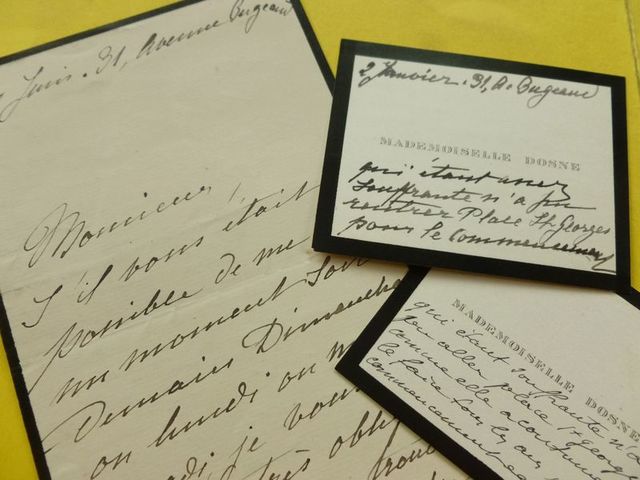 Juin. 31, Avenue Bugeaud
Monsieur,
S'il vous était
possible de me
un moment soit
Demain Dimanche
ou lundi ou
je vous
très
2 Janvier. 31, A. Bugeaud
MADEMOISELLE DOSNE
qui étant assez
souffrante n'a pu
rentrer Place St. Georges
pour le commencement
MADEMOISELLE DOSNE
qui étant souffrante n'a
pu aller place St Georges
comme elle a coutume
le faire tous les ans
commencement